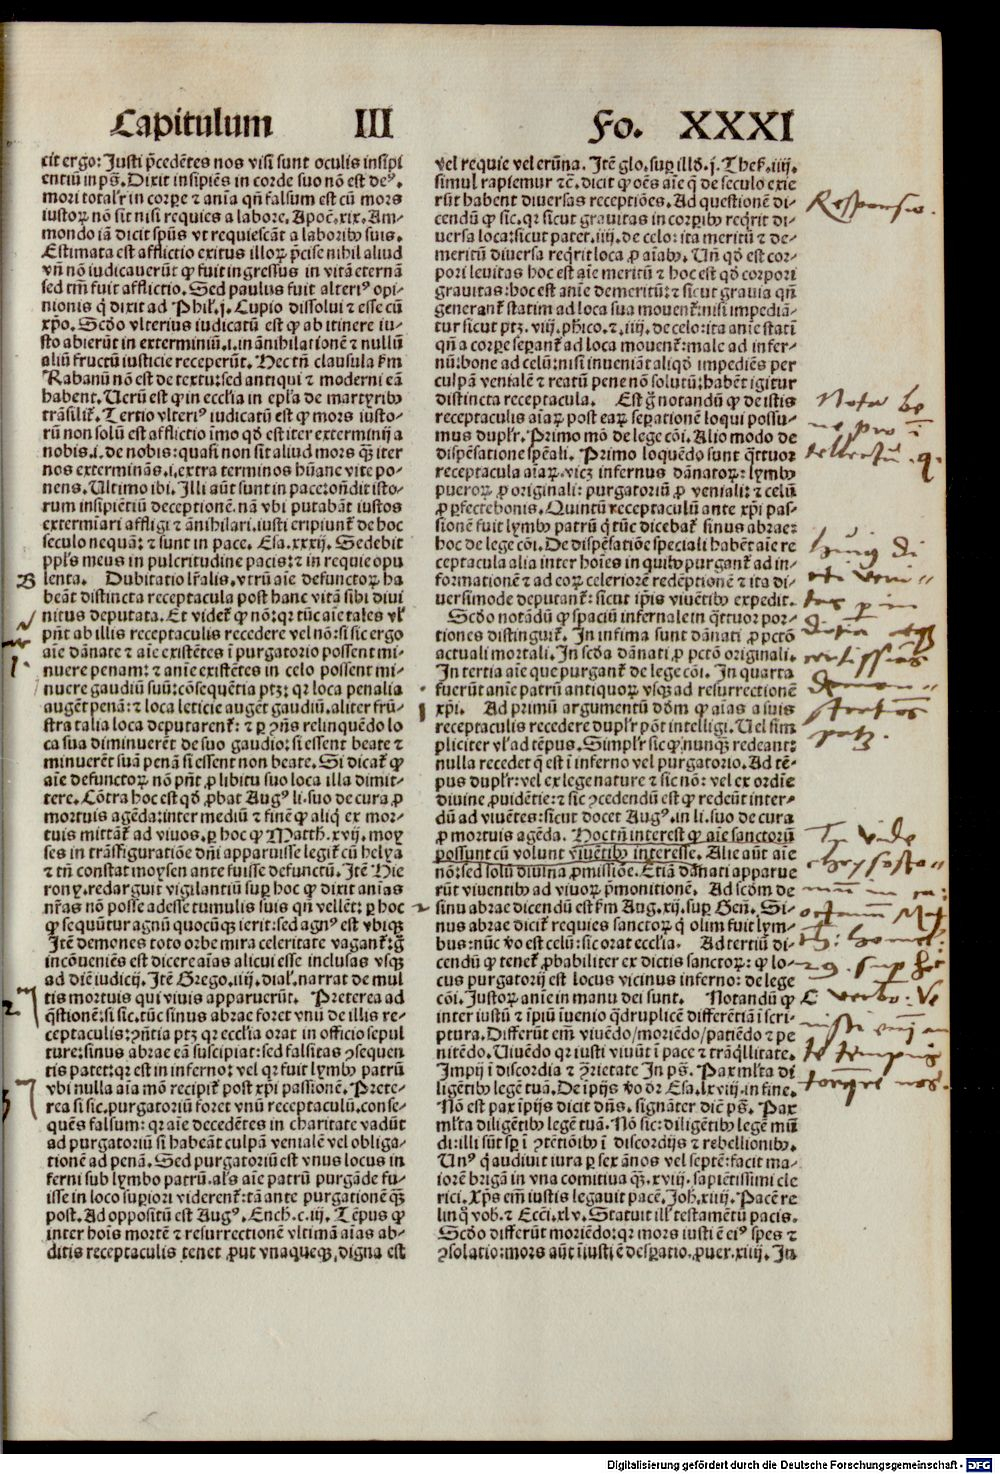 Capitulum III Fo. XXXI
cit ergo: Justi p̄cedētes nos visi sunt oculis insipi
entiū in ps̄. Dixit insipiēs in corde suo nō est deꝰ.
mori totalr̄ in corpe ⁊ ania qn̄ falsum est cū mors
iustoꝝ nō sit nisi requies a labore. Apoc. xix. Am⸗
mondo iā dicit spūs vt requiescāt a laboribꝰ suis.
Estimata est afflictio exitus illoꝝ p̄cise nihil aliud
vn̄ nō iudicauerūt ꝙ fuit ingressus in vitā eternā
sed tm̄ fuit afflictio. Sed paulus fuit alteriꝰ opi⸗
nionis q̇ dixit ad Phil. j. Cupio dissolui ⁊ esse cū
xp̄o. Scd̄o vlterius iudicatū est ꝙ ab itinere iu⸗
sto abierūt in exterminiū. i. in ānihilationē ⁊ nullū
aliū fructū iusticie receperūt. Hec tn̄ clausula ẜm
Rabanū nō est de textu: sed antiqui ⁊ moderni eā
habent. Uerū est ꝙ in ecclīa in epl̄a de martyribꝰ
trāsilit᷑. Tertio vlteriꝰ iudicatū est ꝙ mors iusto⸗
rū non solū est afflictio īmo qd̄ est iter exterminij a
nobis. i. de nobis: quasi non sit aliud mors qꝫ iter
nos exterminās. i. extra terminos hūane vite po⸗
nens. Ultimo ibi. Illi aūt sunt in pace: on̄dit isto⸗
rum insipiētiū deceptionē. nā vbi putabāt iustos
extermīari affligi ⁊ ānihilari. iusti eripiunt᷑ de hoc
seculo nequā: ⁊ sunt in pace. Esa. xxxij. Sedebit
ppl̄s meus in pulcritudine pacis: ⁊ in requie opu
B lenta. Dubitatio lr̄alis. vtrū aīe defunctoꝝ ha
beāt distincta receptacula post hanc vitā sibi diui
nitus deputata. Et videt᷑ ꝙ nō: qꝛ tūc aīe tales vl̄
pn̄t ab illis receptaculis recedere vel nō: si sic ergo
aīe dānate ⁊ aīe existētes ī purgatorio possent mi⸗
nuere penam: ⁊ anīe existētes in celo possent mi⸗
nuere gaudiū suū: cōsequētia ptꝫ: qꝛ loca penalia
augēt penā: ⁊ loca leticie augēt gaudiū. aliter frū⸗
stra talia loca deputarent᷑: ⁊ ꝑ ꝯn̄s relinquēdo lo
ca sua diminuerēt de suo gaudio: si essent beate ⁊
minuerēt suā penā si essent non beate. Si dicat᷑ ꝙ
aīe defunctoꝝ nō pn̄t ꝓ libitu suo loca illa dimit⸗
tere. Cōtra hoc est qd̄ ꝓbat Augꝰ li. suo de cura ꝓ
mortuis agēda: inter mediū ⁊ finē ꝙ aliq̇ ex mor⸗
tuis mittāt᷑ ad viuos. ꝑ hoc ꝙ Matth. xvij. moy
ses in trāsfiguratiōe dn̄i apparuisse legit᷑ cū helya
⁊ tn̄ constat moysen ante fuisse defunctū. Itē Hie
rony. redarguit vigilantiū suꝑ hoc ꝙ dixit anīas
nr̄as nō posse adesse tumulis suis qn̄ vellēt: ꝑ hoc
ꝙ sequūtur agnū quocūqꝫ ierit: sed agnꝰ est vbiqꝫ
Itē demones toto orbe mira celeritate vagant᷑: ḡ
incōueniēs est dicere aīas alicui esse inclusas vsqꝫ
ad diē iudicij. Itē Grego. iiij. dial. narrat de mul
tis mortuis qui viuis apparuerūt. Preterea ad
q̄stionē: si sic. tūc sinus abrae foret vnū de illis re⸗
ceptaculis: ꝯn̄tia ptꝫ qꝛ ecclīa orat in officio sepul
ture: sinus abrae eā suscipiat: sed falsitas ꝯsequen
tis patet: qꝛ est in inferno: vel qꝛ fuit lymbꝰ patrū
vbi nulla aīa mō recipit᷑ post xp̄i passionē. Prete⸗
rea si sic. purgatoriū foret vnū receptaculū. conse⸗
quēs falsum: qꝛ aīe decedētes in charitate vadūt
ad purgatoriū si habeāt culpā venialē vel obliga⸗
tionē ad penā. Sed purgatoriū est vnus locus in
ferni sub lymbo patrū. als̄ aīe patrū purgāde fu⸗
isse in loco suꝑiori viderent᷑: tā ante purgationē qꝫ
post. Ad oppositū est Augꝰ. Ench. c. iij. Tēpus ꝙ
inter hoīs mortē ⁊ resurrectionē vltimā aīas ab⸗
ditis receptaculis tenet ꝓut vnaqueqꝫ digna est
vel requie vel erūna. Itē glo. suꝑ illd̄. j. Thes. iiij.
simul rapiemur ⁊c̄. dicit ꝙ oēs aīe q̄ de seculo exie
rūt habent diuersas receptiōes. Ad questionē di⸗
cendū ꝙ sic. qꝛ sicut grauitas in corꝑibꝰ req̇rit di⸗
uersa loca: sicut patet. iiij. de celo: ita meritū ⁊ de⸗
meritū diuersa req̇rit loca ꝓ aīabꝰ. Un̄ qd̄ est cor⸗
pori leuitas hoc est aīe meritū ⁊ hoc est qd̄ corpori
grauitas: hoc est anīe demeritū: ⁊ sicut grauia qn̄
generant᷑ statim ad loca sua mouent᷑: nisi impediā⸗
tur sicut ptꝫ. viij. phico. ⁊. iiij. de celo: ita anīe statī
qn̄ a corꝑe seꝑant᷑ ad loca mouent᷑: male ad infer⸗
nū: bone ad celū: nisi inueniāt aliqd̄ impediēs per
culpā venialē ⁊ reatū pene nō solutū: habēt igitur
distincta receptacula. Est ḡ notandū ꝙ de istis
receptaculis aīaꝝ post eaꝝ seꝑationē loqui possu⸗
mus duplr̄. Primo mō de lege cōi. Alio modo de
dispēsatione spēali. Primo loquēdo sunt q̄ttuor
receptacula aīaꝝ. vicꝫ infernus dānatoꝝ: lymbꝰ
pueroꝝ ꝓ originali: purgatoriū ꝓ veniali: ⁊ celū
ꝓ ꝑfecte bonis. Quintū receptaculū ante xp̄i pas⸗
sionē fuit lymbꝰ patrū q̇ tūc dicebat᷑ sinus abrae:
hoc de lege cōi. De dispēsatiōe speciali habēt aīe re
ceptacula alia inter hoīes in quibꝰ purgant᷑ ad in⸗
formationē ⁊ ad eoꝝ celeriorē redēptionē ⁊ ita di⸗
uersimode deputant᷑: sicut ip̄is viuētibꝰ expedit.
Scd̄o notandū ꝙ spaciū infernale in q̄ttuor por⸗
tiones distinguit᷑. In infima sunt dānati ꝓ pctō
actuali mortali. In scd̄a dānati ꝓ pctō originali.
In tertia aīe que purgant᷑ de lege cōi. In quarta
fuerūt anīe patrū antiquoꝝ vsqꝫ ad resurrectionē
xp̄i. Ad primū argumentū dd̄m ꝙ aīas a suis
receptaculis recedere duplr̄ pōt intelligi. Uel sim
pliciter vl̄ ad tēpus. Simplr̄ sic ꝙ nunqꝫ redeant:
nulla recedet q̄ est ī inferno vel purgatorio. Ad tē⸗
pus duplr̄: vel ex lege nature ⁊ sic nō: vel ex ordīe
diuine ꝓuidētie: ⁊ sic ꝯcedendū est ꝙ redeūt inter⸗
dū ad viuētes: sicut docet Augꝰ. in li. suo de cura
ꝓ mortuis agēda. Hoc tn̄ interest ꝙ aīe sanctoꝝ
possunt cū volunt viuētibꝰ interesse. Alie aūt aīe
nō: sed solū diuina ꝓmissiōe. Etiā dānati apparue
rūt viuentibꝰ ad viuoꝝ p̄monitionē. Ad scd̄m de
sinu abrae dicendū est ẜm Aug. xij. suꝑ Gen̄. Si⸗
nus abrae dicit᷑ requies sanctoꝝ q̇ olim fuit lym⸗
bus: nūc v̄o est celū: sic orat ecclīa. Ad tertiū di⸗
cendū ꝙ tenet᷑ ꝓbabiliter ex dictis sanctoꝝ: ꝙ lo⸗
cus purgatorij est locus vicinus inferno: de lege
cōi. Justoꝝ anīe in manu dei sunt. Notandū ꝙ C
inter iustū ⁊ īpiū īuenio q̇druplicē differētiā ī scri⸗
ptura. Differūt em̄ viuēdo/moriēdo/patiēdo ⁊ pe
nitēdo. Uiuēdo qꝛ iusti viuūt ī pace ⁊ trāq̇llitate.
Impij ī discordia ⁊ ꝯrietate In ps̄. Pax ml̄ta di
ligētibꝰ legē tuā. De īpijs v̄o d̄r Esa. lxviij. in fine.
Nō est pax īpijs dicit dn̄s. signāter diē ps̄. Pax
ml̄ta diligētibꝰ legē tuā. Nō sic: diligētibꝰ legē mū
di: illi sūt sꝑ ī ꝯtētiōibꝰ ī discordijs ⁊ rebellionibꝰ.
Unꝰ q̇ audiuit iura ꝑ sex ānos vel septē: facit ma⸗
iorē brigā in vna comitiua qꝫ. xviij. sapiētissimi cle
rici. Xp̄s em̄ iustis legauit pacē. Joh. xiiij. Pacē re
linq̇ vob. ⁊ Ecci. xlv. Statuit ill̄ testamētū pacis.
Scd̄o differūt moriēdo: qꝛ mors iusti ē eiꝰ spes ⁊
ꝯsolatio: mors aūt īiusti ē desꝑatio. ꝓuer. xiiij. In
Responsio.
Nota be
ne pro ī
tellectu . q.
huiꝰ di
cti veri⸗
tas ꝑ in
certissimas
patꝫ.
vide
chrysosto⸗
2
homel.
29. sup hoc
verbo: Ve
nisti
te tempus
torquere nos.
1
2
3
Digitalisierung gefördert durch die Deutsche Forschungsgemeinschaft - DFG